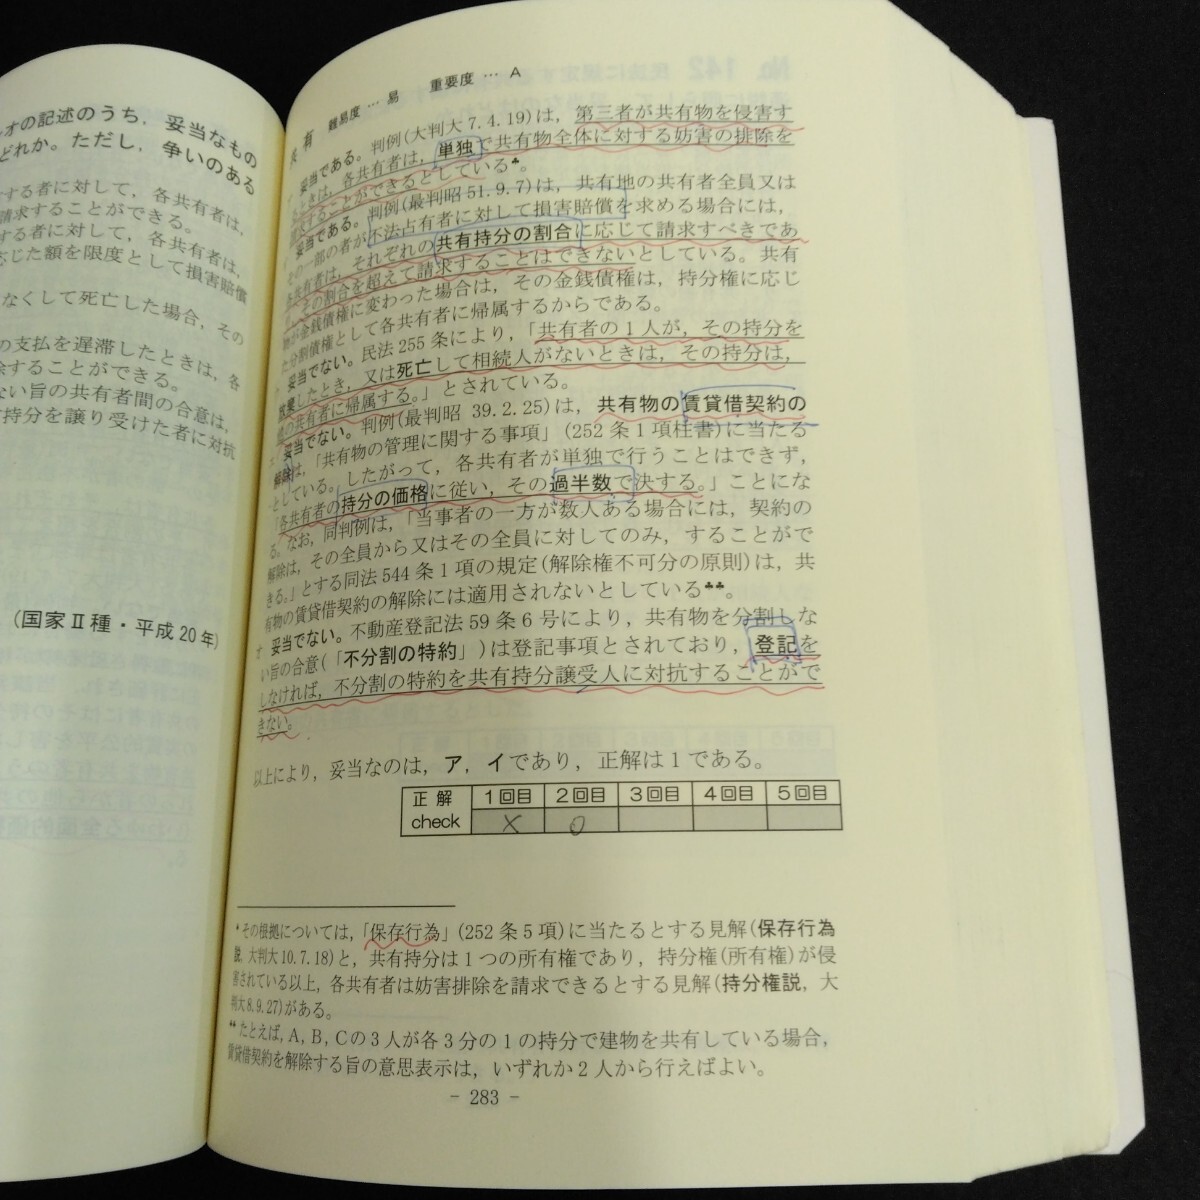 オの記述のうち，妥当なもの
どれか。ただし，争いのある
する者に対して，各共有者は，
請求することができる。
する者に対して，各共有者は，
応じた額を限度として損害賠償
なくして死亡した場合，その
の支払を遅滞したときは，各
除することができる。
ない旨の共有者間の合意は，
持分を譲り受けた者に対抗
(国家Ⅱ種・平成20年)
共有 難易度…易 重要度…A
妥当である。判例(大判大7.4.19)は，第三者が共有物を侵害す
るときは，各共有者は，単独で共有物全体に対する妨害の排除を
請求することができるとしている♣。
イ 妥当である。判例(最判昭51.9.7)は，共有地の共有者全員又は
その一部の者が不法占有者に対して損害賠償を求める場合には，
各共有者は，それぞれの共有持分の割合に応じて請求すべきであ
り，その割合を超えて請求することはできないとしている。共有
物が金銭債権に変わった場合は，その金銭債権は，持分権に応じ
た分割債権として各共有者に帰属するからである。
妥当でない。民法255条により，「共有者の1人が，その持分を
放棄したとき，又は死亡して相続人がないときは，その持分は，
他の共有者に帰属する。」とされている。
妥当でない。判例(最判昭39.2.25)は，共有物の賃貸借契約の
解除は，「共有物の管理に関する事項」(252条1項柱書)に当たる
としている。したがって，各共有者が単独で行うことはできず，
「各共有者の持分の価格に従い，その過半数で決する。」ことにな
る。なお，同判例は，「当事者の一方が数人ある場合には，契約の
解除は，その全員から又はその全員に対してのみ，することがで
きる。」とする同法544条1項の規定(解除権不可分の原則)は，共
有物の賃貸借契約の解除には適用されないとしている♣♣。
オ 妥当でない。不動産登記法59条6号により，共有物を分割しな
い旨の合意(「不分割の特約」)は登記事項とされており，登記を
しなければ，不分割の特約を共有持分譲受人に対抗することがで
きない。
以上により，妥当なのは，ア，イであり，正解は1である。
正解 1回目 2回目 3回目 4回目 5回目
check × ○
♣その根拠については，「保存行為」(252条5項)に当たるとする見解(保存行為
説，大判大10.7.18)と，共有持分は1つの所有権であり，持分権(所有権)が侵
害されている以上，各共有者は妨害排除を請求できるとする見解(持分権説，大
判大8.9.27)がある。
♣♣たとえば，A，B，Cの3人が各3分の1の持分で建物を共有している場合，
賃貸借契約を解除する旨の意思表示は，いずれか2人から行えばよい。
- 283 -